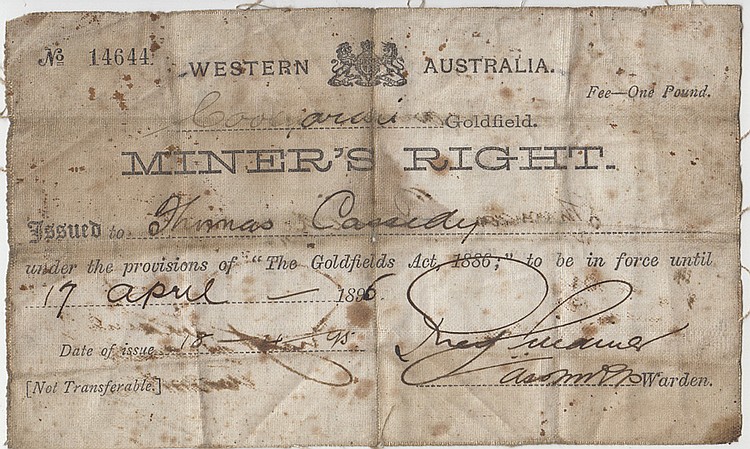 No 14644.
WESTERN AUSTRALIA.
Fee—One Pound.
Coolgardie Goldfield.
MINER'S RIGHT.
Issued to Thomas Cassidy
under the provisions of "The Goldfields Act, 1886;" to be in force until
17 April — 1896.
Date of issue 18 - 4 - 95
[Not Transferable.]
Warden.